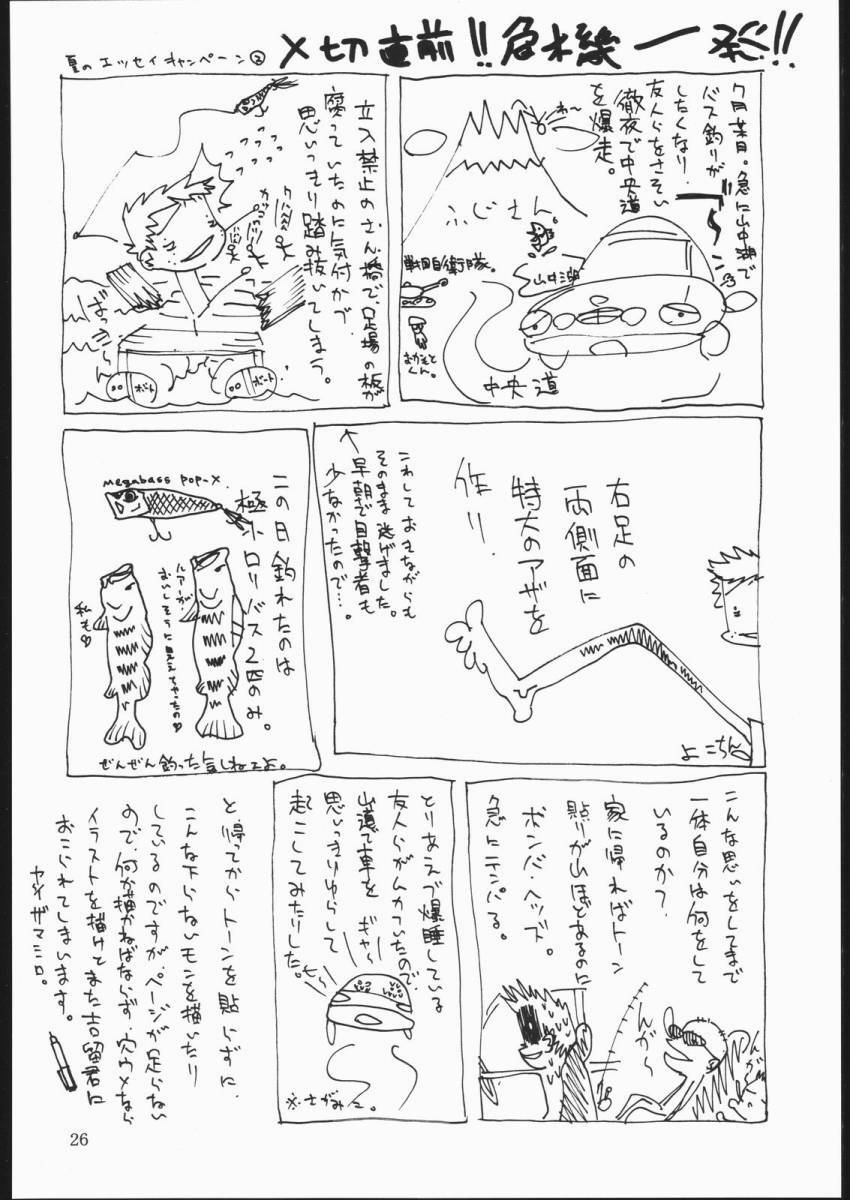 夏のエッセイキャンペーン②
〆切直前!!危機一発!!
7月某日。急に山中湖で
バス釣りが
したくなり、
友人らをさそい
徹夜で中央道
を爆走。
わ〜
ふじさん
山中湖
戦国自衛隊。
おかもとくん。
中央道
立入禁止のさん橋で、足場の板が
腐っていたのに気付かず
思いっきり踏み抜いてしまう。
ボート
ボート
右足の
両側面に
特大のアザを
作り、
こわしておきながらも
そのまま逃げました。
早朝で目撃者も
少なかったので…。
よこちん
この日釣れたのは
極小ロリバス2匹のみ。
megabass POP-X
ルアーが
おいしそうに見えちゃったの♡
私も♡
ぜんぜん釣った気しねーよ。
こんな思いをしてまで
一体自分は何をして
いるのか?
家に帰ればトーン
貼りが山ほどあるのに
ボンバヘッズ。
急にテンパる。
んが〜
とりあえず爆睡している
友人らがムカついたので
山道で車を
思いっきりゆらして
起こしてみたりした。
ギャ〜
※さがみこ。
と、帰ってからトーンを貼らずに、
こんな下らないモンを描いたり
しているのですが、ページが足らない
ので、何か描かねばならず、穴ウメなら
イラストを描けとまた吉留君に
おこられてしまいます。
ヤシザマミロ。
26